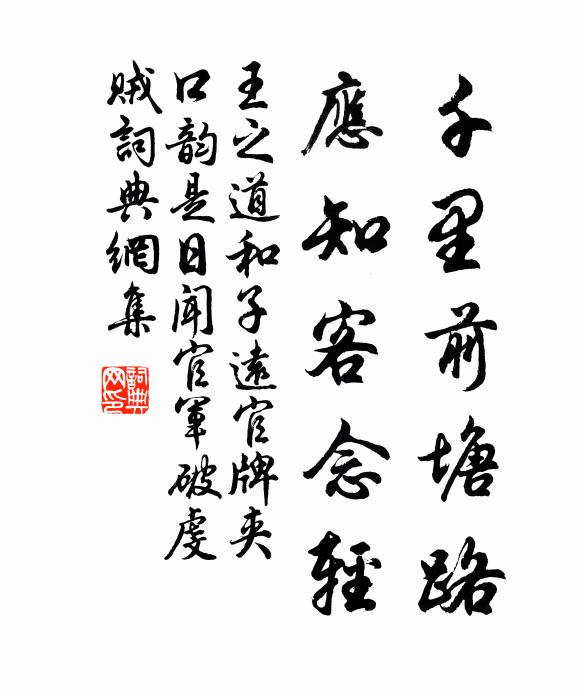 千里前塘路
應知客念輕
王之道和子遠官牌夾
口韵是日聞官軍破虔
賊詞典網集
詞典
网印